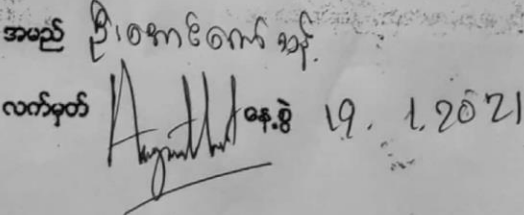 အမည် ဦးအောင်ကျော်သန့်
လက်မှတ် နေ့စွဲ 19.1.2021